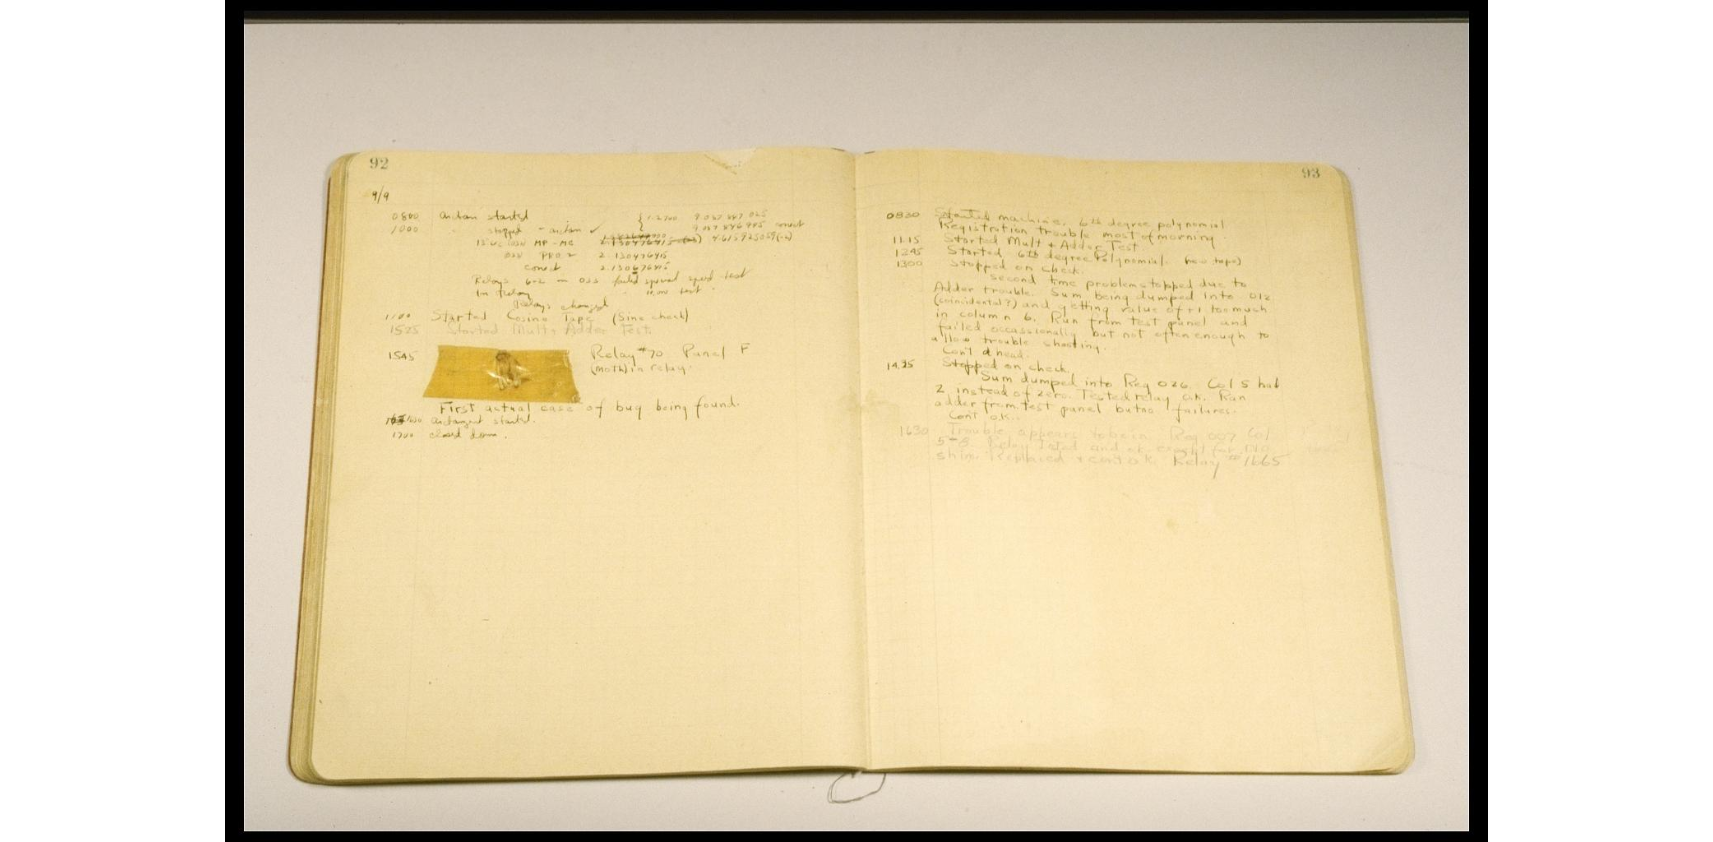 92
9/9
0800 Antan started
1000 stopped - antan ✓
13" MP-MC
033 PRO 2 2.130476415
correct 2.130676415
Relays 6-2 in 033 failed special speed test
in relay
Relays changed
1100 Started Cosine Tape (Sine check)
1525 Started Mult + Adder Test.
1545 Relay #70 Panel F
(moth) in relay.
First actual case of bug being found.
antangent started.
1700 closed down.
93
0830 Started machine. 6th degree polynomial
Registration trouble most of morning.
1115 Started Mult + Adder Test
1245 Started 6th degree Polynomial. (new tape)
1300 Stopped on check.
Second time problem stopped due to
Adder trouble. Sum being dumped into 012
(coincidental?) and getting value of +1 too much
in column 6. Run from test panel and
failed occassionally but not often enough to
allow trouble shooting.
Con't ahead.
1425 Stopped on check
Sum dumped into Reg 026. Col 5 had
2 instead of zero. Tested relay o.k. Ran
adder from test panel but no failures.
Con't o.k.
1630 Trouble appears to be in Reg 007 Col
Relay tested and o.k. except for
shim. Replaced + cont o.k. Relay 1665